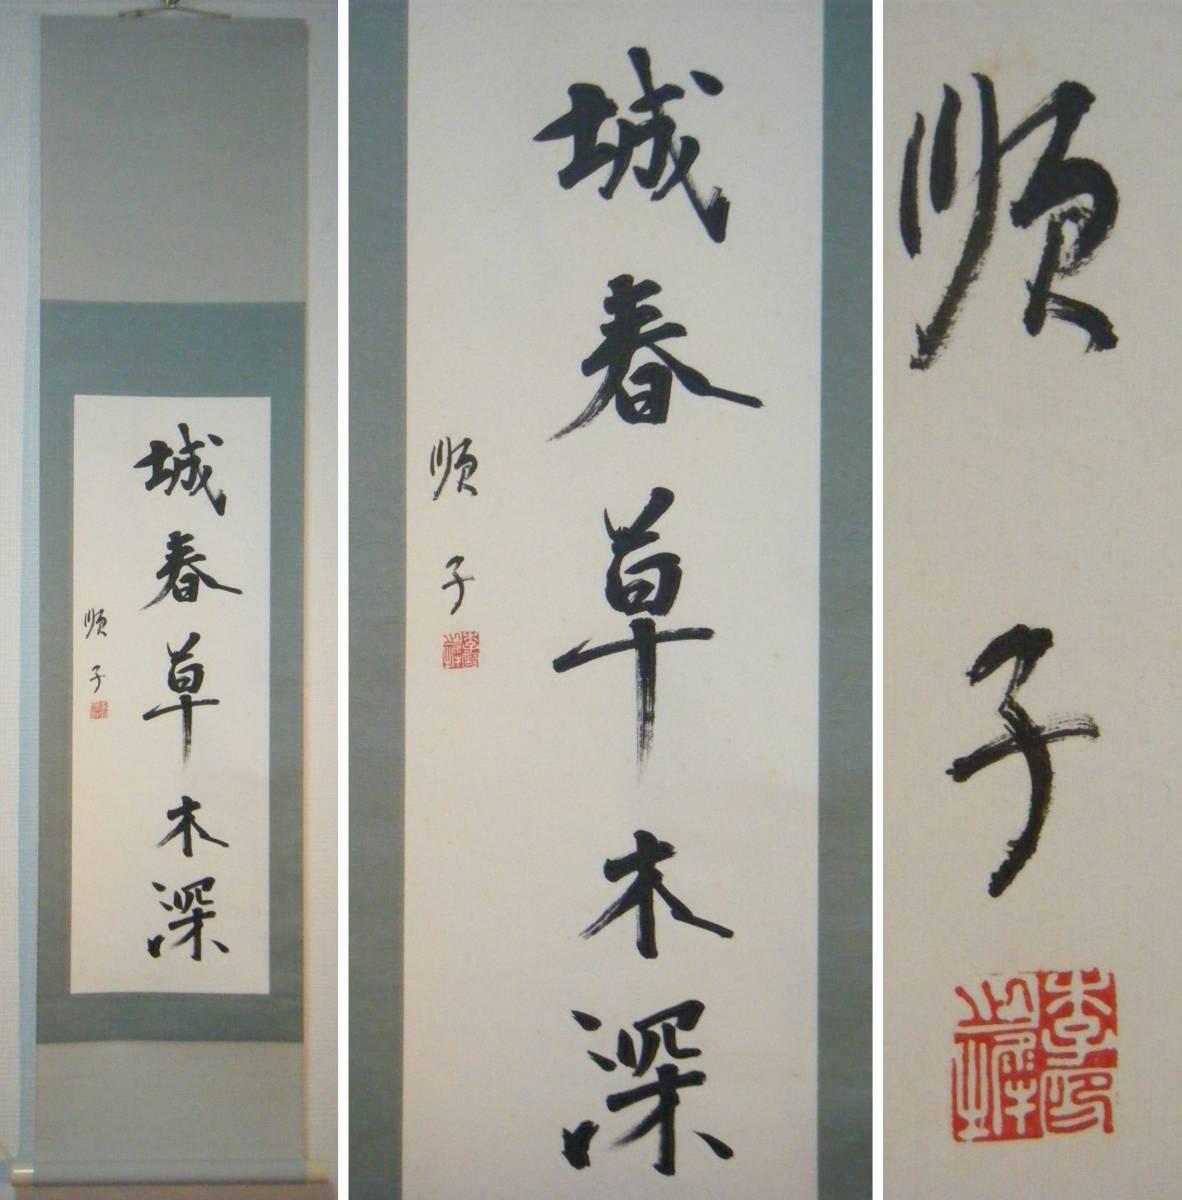 城春草木深
順子
城春草木深
順子
順子